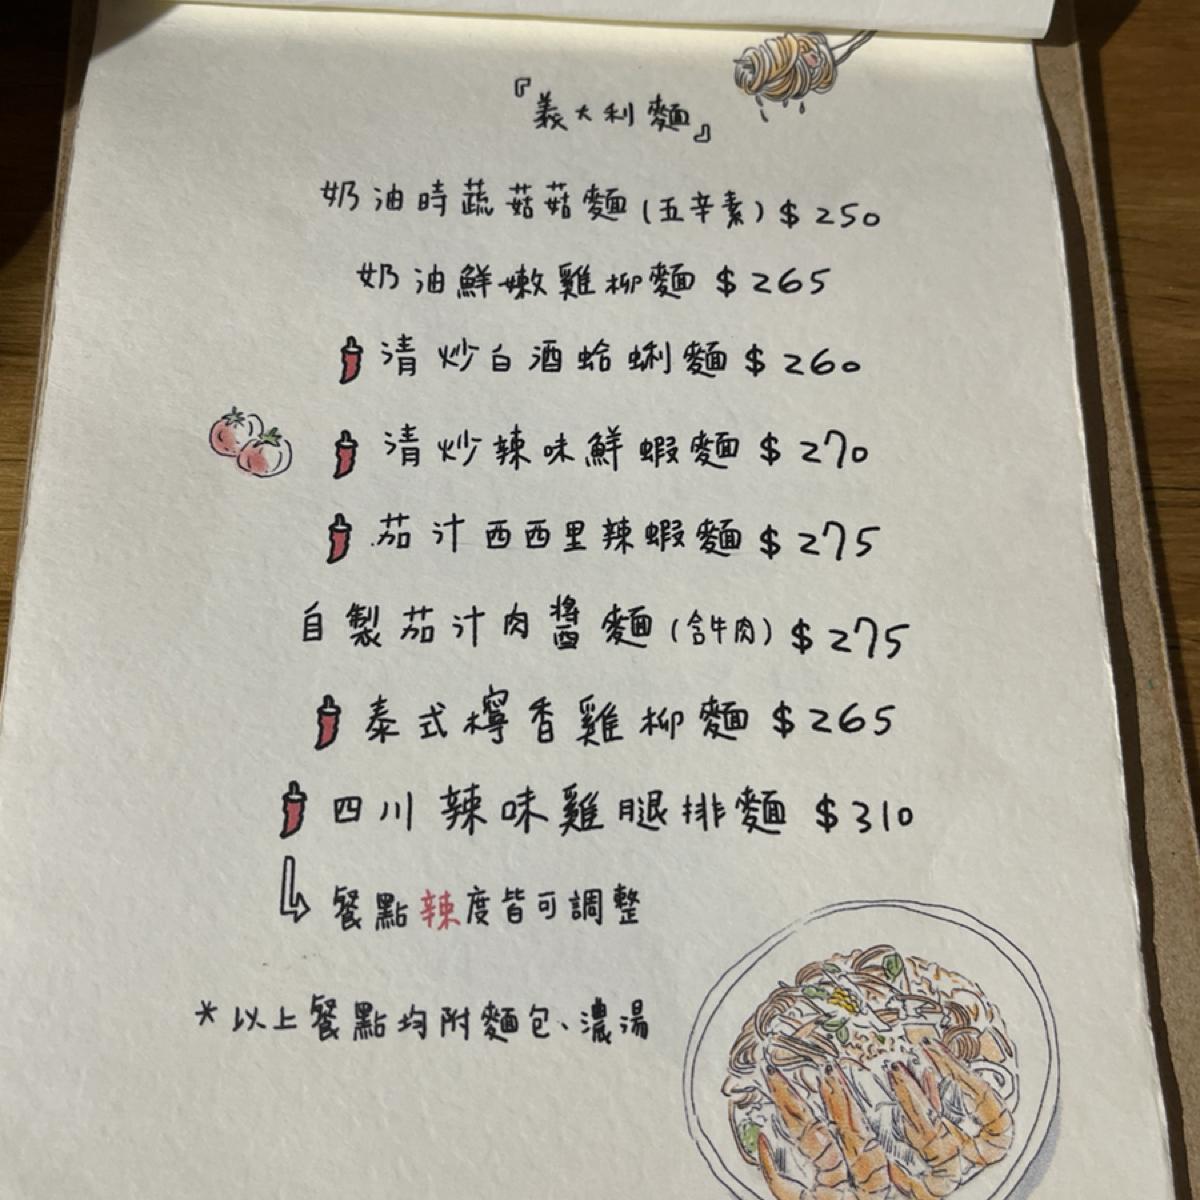 『義大利麵』
奶油時蔬菇菇麵(五辛素) $250
奶油鮮嫩雞柳麵 $265
清炒白酒蛤蜊麵 $260
清炒辣味鮮蝦麵 $270
茄汁西西里辣蝦麵 $275
自製茄汁肉醬麵(含牛肉) $275
泰式檸香雞柳麵 $265
四川辣味雞腿排麵 $310
餐點辣度皆可調整
*以上餐點均附麵包、濃湯